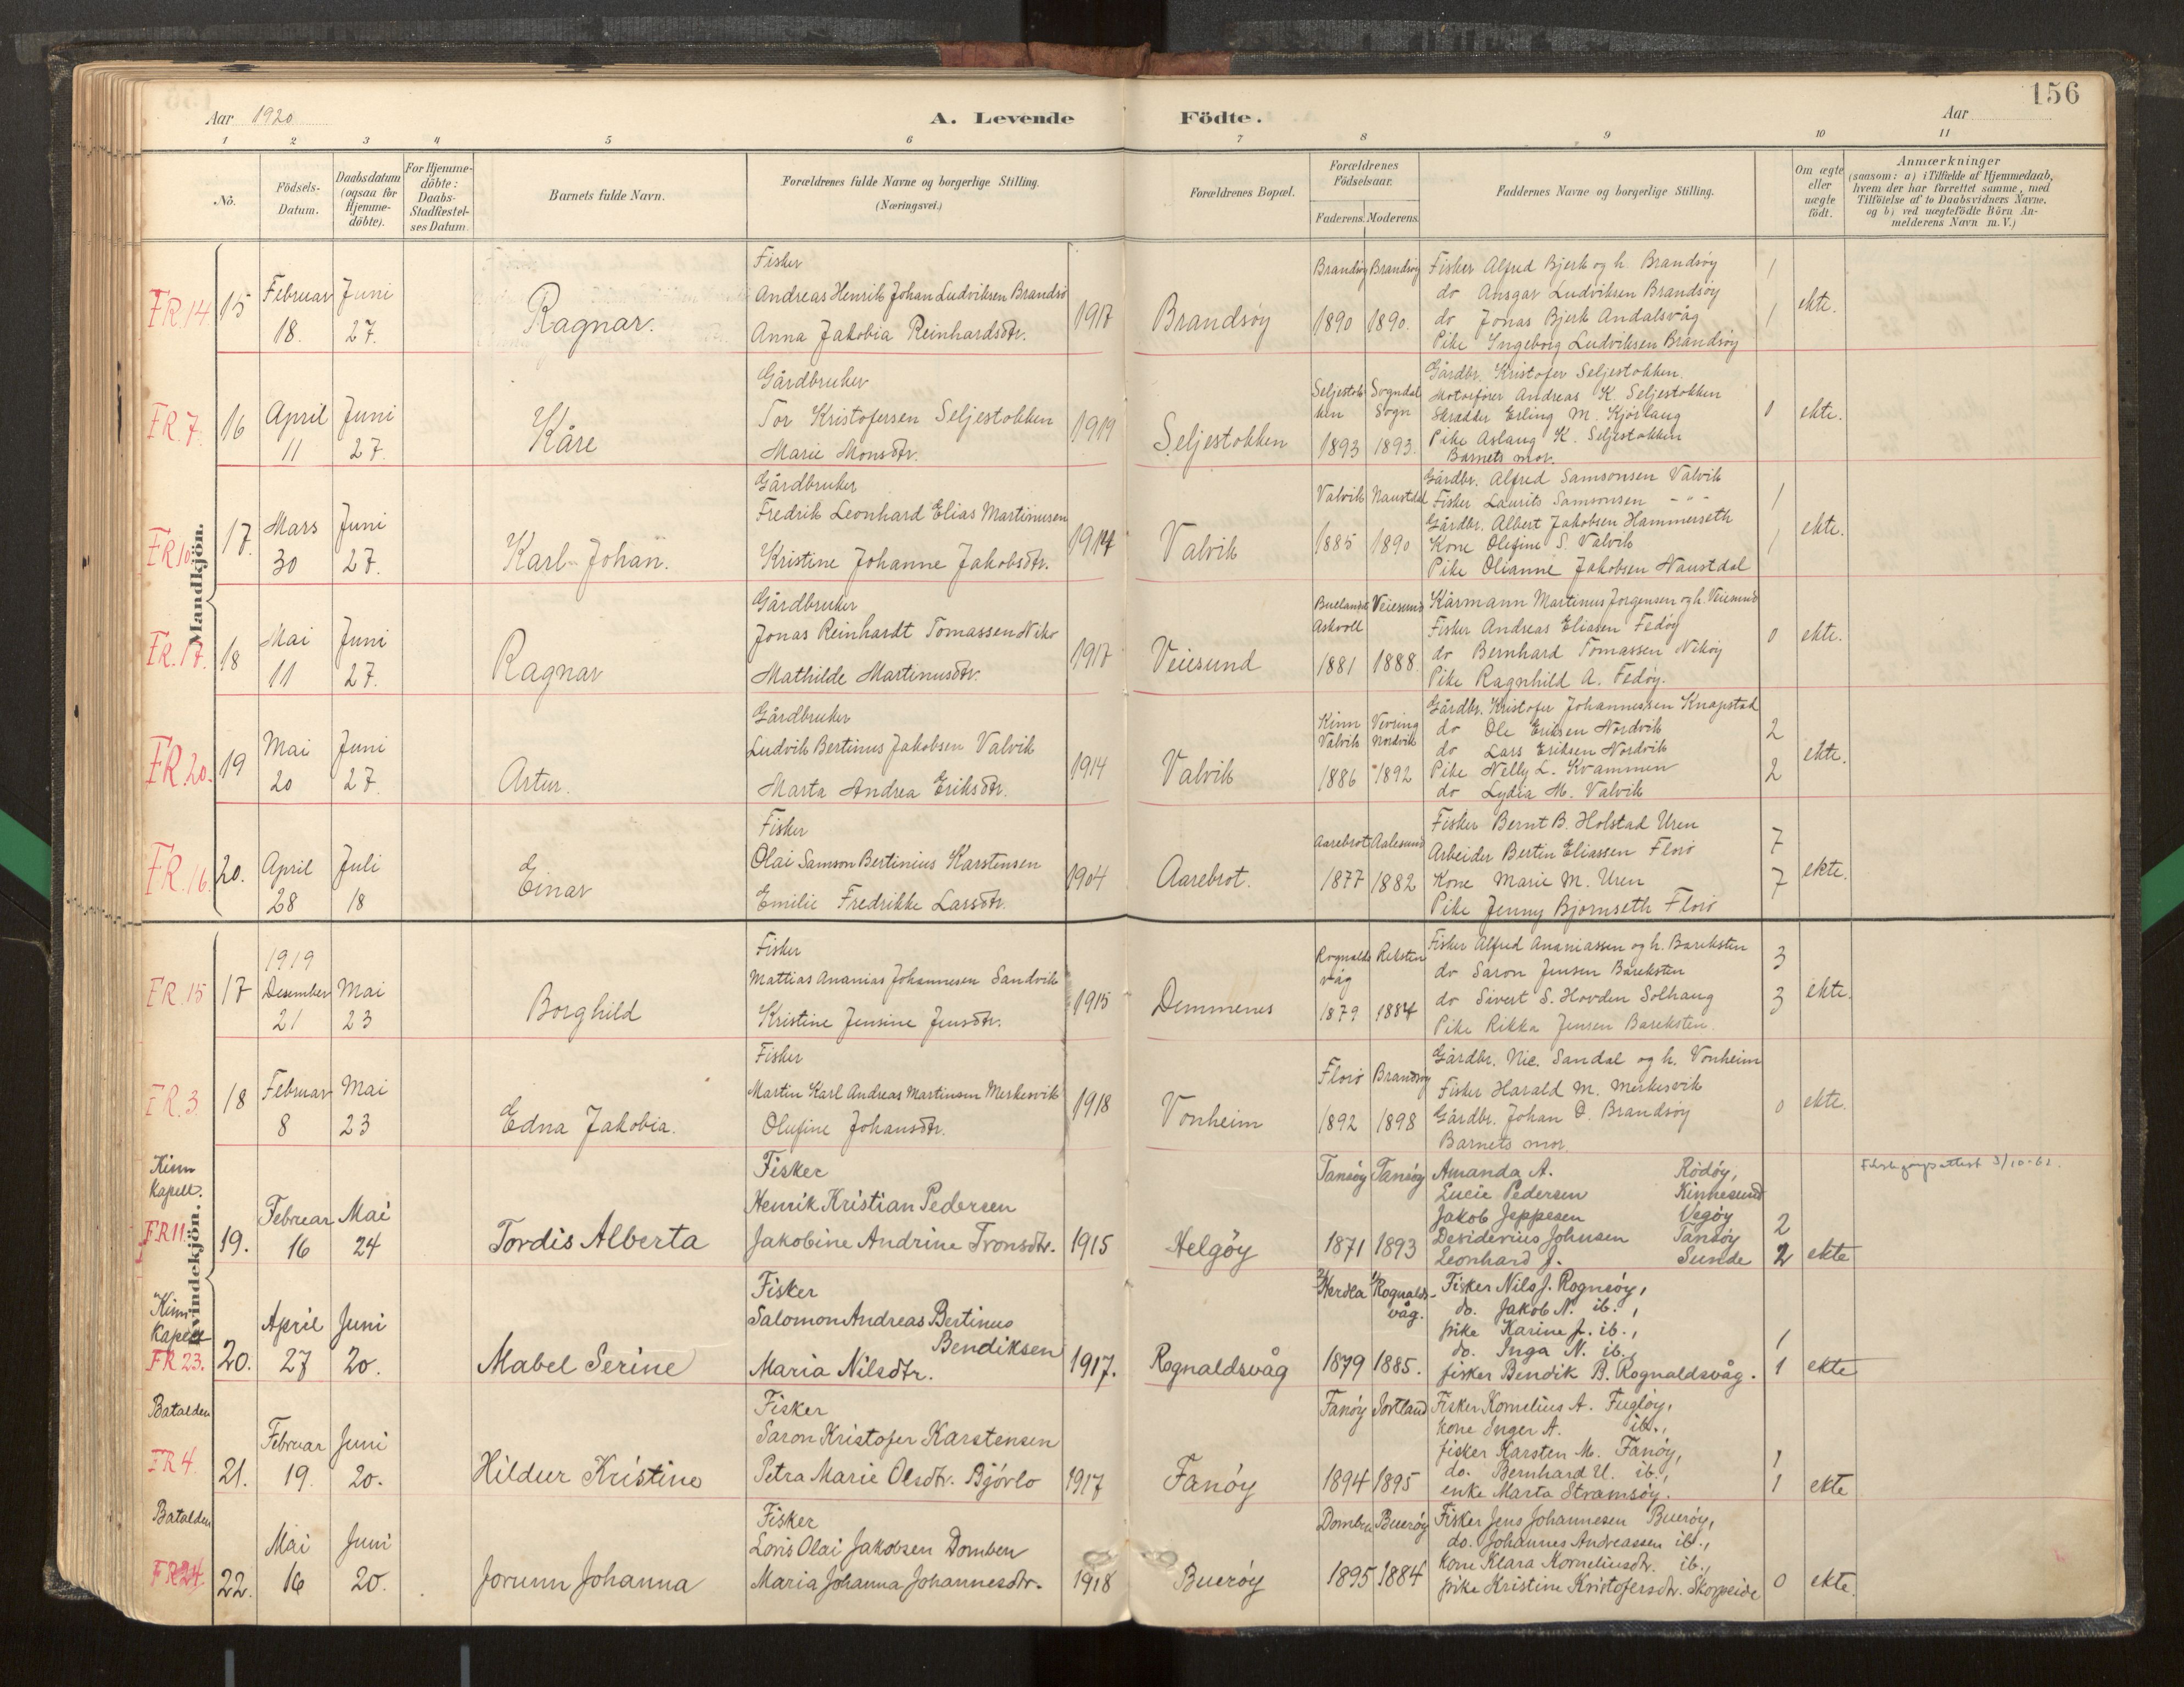 156
Aar 1920
A. Levende Födte.
Aar
1 2 3 4 5 6 7 8 9 10 11
No.
Födsels-Datum.
Daabsdatum (ogsaa for Hjemme-döbte).
For Hjemme-döbte: Daabs-Stadfæstel-ses Datum.
Barnets fulde Navn.
Forældrenes fulde Navne og borgerlige Stilling. (Næringsvei.)
Forældrenes Bopæl.
Forældrenes Födselsaar.
Faderens. Moderens.
Faddernes Navne og borgerlige Stilling.
Om ægte eller uægte födt.
Anmærkninger
(saasom: a) i Tilfælde af Hjemmedaab,
hvem der har forrettet samme, med
Tilföielse af to Daabsvidners Navne,
og b) ved uægtefödte Börn An-
melderens Navn m. V.)
Mandkjön.
FR. 14. 15 Februar 18. Juni 27. Ragnar.
Fisker
Andreas Henrik Johan Ludviksen Brandsö
Anna Jakobia Reinhardsdtr.
1917 Brandsöy
Brandsöy 1890 Brandsöy 1890.
Fisker Alfred Bjerk og h. Brandsöy
do Ansgar Ludviksen Brandsöy
do Jonas Bjerk Andalsvåg
Pike Ingeborg Ludviksen Brandsöy
1 1 ekte.
FR. 7. 16 April 11 Juni 27. Kåre
Gårdbruker
Tor Kristofersen Seljestokken
Marie Monsdtr.
1919 Seljestokken
Seljestokken 1893 Sogndal Sogn 1893.
Gårdbr. Kristofer Seljestokken.
Motorförer Andreas K. Seljestokken
Skrædder Erling M. Kjörlaug
Pike Aslaug K. Seljestokken
Barnets mor.
0 ekte.
FR. 10. 17. Mars 30 Juni 27. Karl-Johan.
Gårdbruker
Fredrik Leonhard Elias Martinusen
Kristine Johanne Jakobsdtr.
1914 Valvik
Valvik 1885 Naustdal 1890
Gårdbr. Alfred Samsonsen Valvik
Fisker Laurits Samsonsen - " -
Gårdbr. Albert Jakobsen Hammerseth
Kone Olefine S. Valvik
Pike Olianne Jakobsen Naustdal
1 1 ekte.
FR. 17. 18 Mai 11 Juni 27. Ragnar
Gårdbruker
Jonas Reinhardt Tomassen Nikö
Mathilde Martinusdtr.
1917 Veiesund
Buelandet Askvoll 1881 Veiesund 1888.
Kårmann Martinus Jorgensen og h. Veiesund
Fisker Andreas Eliasen Fedöy
do Bernhard Tomassen Niköy
Pike Ragnhild A. Fedöy.
0 ekte.
FR. 20. 19 Mai 20 Juni 27. Artur.
Gårdbruker
Ludvik Bertinus Jakobsen Valvik
Marta Andrea Eriksdtr.
1914 Valvik
Kinn Valvik 1886 Vevring Nordvik 1892
Gårdbr. Kristofer Johannessen Knapstad
do Ole Eriksen Nordvik
do Lars Eriksen Nordvik
Pike Nelly L. Kvammen
do Lydia M. Valvik
2 2 ekte.
FR. 16. 20. April 28 Juli 18 Einar
Fisker
Olai Samson Bertinius Karstensen
Emilie Fredrikke Larsdtr.
1904 Aarebrot.
Aarebrot 1877 Aalesund 1882
Fisker Bernt B. Holstad Uren
Arbeider Bertin Eliassen Florö
Kone Marie M. Uren
Pike Jenny Bjornseth Florö
7 7 ekte.
Kvindekjön.
FR. 15 17 1919 Desember 21 Mai 23 Borghild
Fisker
Mattias Ananias Johannesen Sandvik
Kristine Jensine Jensdtr.
1915 Demmenes
Rognaldsvåg 1879 Reksten 1884
Fisker Alfred Ananiassen og h. Bareksten
do Saron Jensen Bareksten
do Sivert S. Hovden Solhaug
Pike Rikka Jensen Bareksten.
3 3 ekte.
FR. 3. 18 Februar 8 Mai 23 Edna Jakobia.
Fisker
Martin Karl Andreas Martinsen Merkesvik
Olufine Johansdtr.
1918 Vonheim
Florö 1892 Brandsöy 1898
Gårdbr. Nic. Sandal og h. Vonheim
Fisker Harald M. Merkesvik
Gårdbr. Johan D. Brandsöy
Barnets mor.
0 ekte.
Kinn Kapell.
FR 11. 19. Februar 16 Mai 24 Tordis Alberta
Fisker
Henrik Kristian Pedersen
Jakobine Andrine Tronsdtr.
1915 Helgöy
Tansöy 1871 Tansöy 1893
Amanda A. Rödöy,
Lucie Pedersen Kinnesund
Jakob Jeppesen Vegöy
Desiderius Johnsen Tansöy
Leonhard J. Sunde
2 2 ekte
3/10-62.
Kinn Kapell
FR 23. 20. April 27 Juni 20. Mabel Serine
Fisker
Salomon Andreas Bertinus
Bendiksen
Maria Nilsdtr.
1917. Rognaldsvåg
Herdla 1879 Rognaldsvåg. 1885.
Fisker Nils J. Rognsöy,
do. Jakob N. ib.,
pike Karine J. ib.,
do. Inga N. ib.,
fisker Bendik B. Rognaldsvåg.
1 1 ekte
Batalden
FR 4. 21. Februar 19. Juni 20. Hildur Kristine
Fisker
Saron Kristofer Karstensen
Petra Marie Olsdtr. Bjórlo
1917 Fanöy
Fanöy 1894 Sortland 1895
Fisker Kornelius A. Fuglöy,
kone Inger A. ib.,
fisker Karsten M. Fanöy,
do. Bernhard U. ib.,
enke Marta Stramsöy.
1 1 ekte
Batalden
FR 24. 22. Mai 16 Juni 20. Jorunn Johanna
Fisker
Lovis Olai Jakobsen Domben
Maria Johanna Johannesdtr.
1918 Bueröy
Domben 1895 Bueröy 1884
Fisker Jens Johannesen Bueröy,
do. Johannes Andreassen ib.,
kone Klara Korneliusdtr. ib.,
pike Kristine Kristofersdtr. Skorpeide
0 ekte.